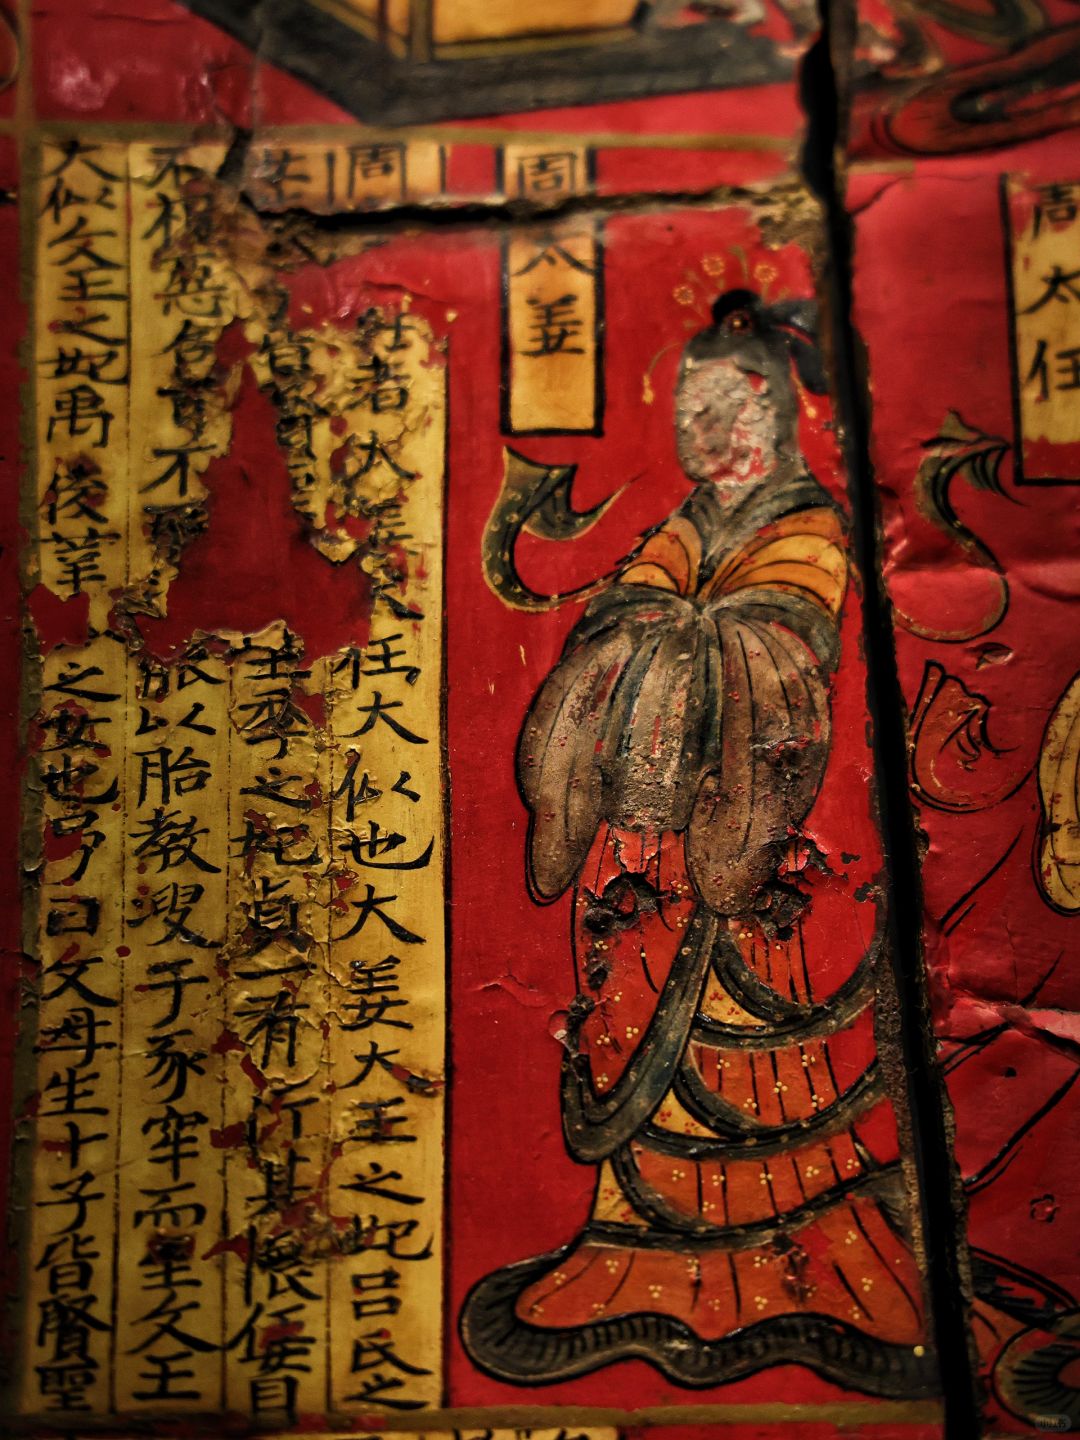 周太任
周太姜
周者大姜大任大似也大姜大王之妃吕氏之
王季之妃貞一有行其懷任目
不視惡色耳不聽能以胎教溲于豕牢而生文王
大似文王之妃禹後莘之女也号曰文母生十子皆賢聖